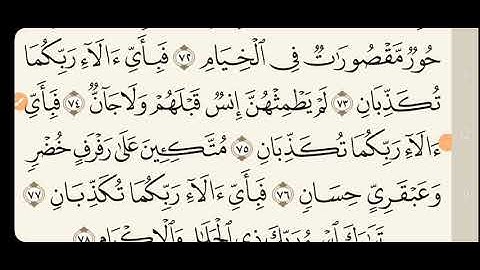 حُورٌ مَّقْصُورَاتٌ فِي الْخِيَامِ ٧٢ فَبِأَيِّ ءَالَآءِ رَبِّكُمَا
تُكَذِّبَانِ ٧٣ لَمْ يَطْمِثْهُنَّ إِنسٌ قَبْلَهُمْ وَلَا جَآنٌّ ٧٤ فَبِأَيِّ
ءَالَآءِ رَبِّكُمَا تُكَذِّبَانِ ٧٥ مُتَّكِـِٔينَ عَلَىٰ رَفْرَفٍ خُضْرٍ
وَعَبْقَرِيٍّ حِسَانٍ ٧٦ فَبِأَيِّ ءَالَآءِ رَبِّكُمَا تُكَذِّبَانِ ٧٧
تَبَارَكَ اسْمُ رَبِّكَ ذِي الْجَلَالِ وَالْإِكْرَامِ ٧٨